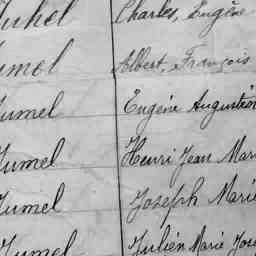 Juhel Charles, Eugène
Jumel Albert, François
Jumel Eugène Augustin
Jumel Henri Jean Mari
Jumel Joseph Marie
Jumel Julien Marie Jose